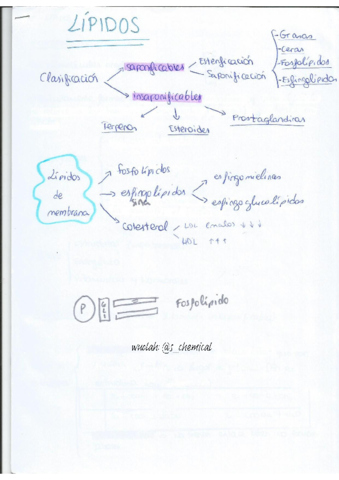 LÍPIDOS
- Grasas
- Ceras
- Fosfolípidos
- Esfingolípidos
Clasificación
saponificables
Esterificación
Saponificación
insaponificables
Terpenos
Esteroides
Prostaglandinas
Lípidos de membrana
fosfolípidos
espingolípidos
espingomielinas
espingoglucolípidos
Colesterol
LDL Malos ↓ ↓ ↓
HDL ↑ ↑ ↑
P
GLI
Fosfolípido
wuolah: @s_chemical